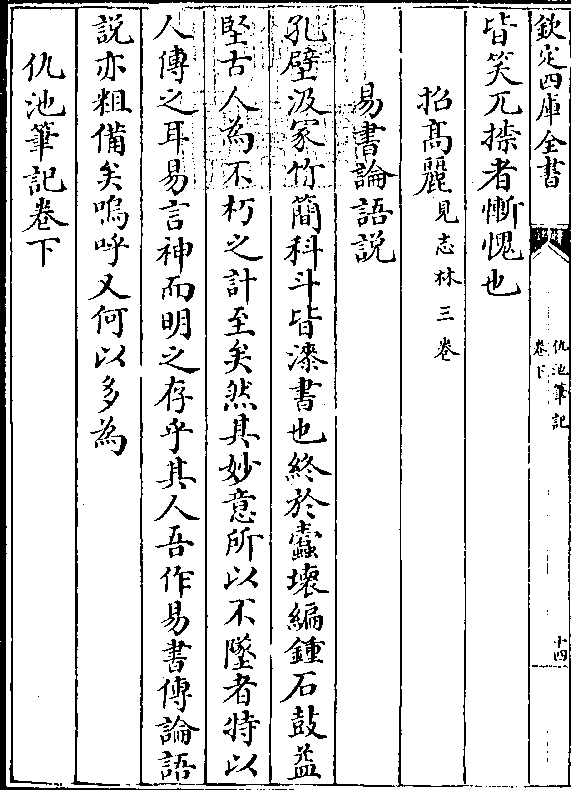 欽定四庫全書
仇池筆記
卷下
十四
皆笑兀捺者慚愧也
招髙麗見志林三卷
易書論語説
孔壁汲冢竹簡科斗皆漆書也終於蠧壊編鍾石鼓益
堅古人為不朽之計至矣然其妙意所以不墜者特以
人傳之耳易言神而明之存乎其人吾作易書傳論語
説亦粗備矣嗚呼又何以多為
仇池筆記卷下